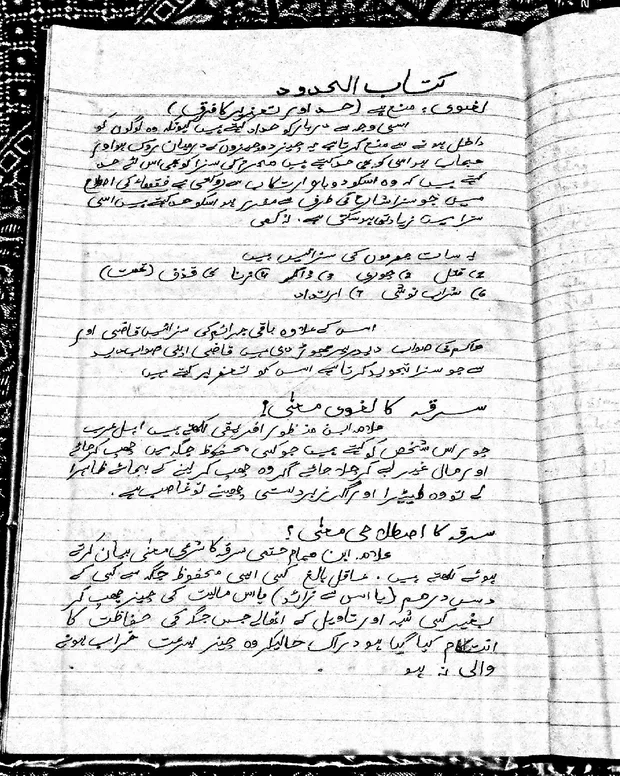 کتاب الحدود
لغوی: منع ہے (حد اور تعزیر کا فرق)
اسی وجہ سے دربان کو حداد کہتے ہیں کیونکہ وہ لوگوں کو
داخل ہونے سے منع کرتا ہے جو چیز دو چیزوں کے درمیان روک ہو اور
حجاب ہو اسی کو بھی حد کہتے ہیں مجرم کی سزا کو بھی اس لئے حد
کہتے ہیں کہ وہ اسکو دوبارہ ارتکاب سے روکتی ہے فقہاء کی اصطلاح
میں جو سزا شارع کی طرف سے مقرر ہو اسکو حد کہتے ہیں اسی
سزا میں زیادتی ہو سکتی ہے، نہ کمی
یہ سات جرموں کی سزائیں ہیں
قتل چوری ڈاکہ زنا قذف (تہمت)
۶) شراب نوشی ۷) ارتداد
اس کے علاوہ باقی جرائم کی سزائیں قاضی اور
حاکم کی صواب دید پر چھوڑ دی ہیں قاضی اپنی صواب دید
سے جو سزا تجویز کرتا ہے اس کو تعزیر کہتے ہیں
سرقہ کا لغوی معنی!
علامہ ابن منظور افریقی لکھتے ہیں اہل عرب
چور اس شخص کو کہتے ہیں جو کسی محفوظ جگہ میں چھپ کر جائے
اور مال غیر لے کر چلا جائے اگر وہ چھپ کر لینے کے بجائے ظاہراً
لے تو وہ لٹیرا اور اگر زبردستی چھینے تو غاصب ہے۔
سرقہ کا اصطلاحی معنی؟
علامہ ابن ھمام حنفی سرقہ کا شرعی معنی بیان کرتے
ہوئے لکھتے ہیں، عاقل بالغ کسی ایسی محفوظ جگہ سے کسی کے
دس درھم (یا اس سے زائد) یا اس مالیت کی چیز چھپ کر
بغیر کسی شبہ اور تاویل کے اٹھالے جس جگہ کی حفاظت کا
انتظام کیا گیا ہو دراں حالیکہ وہ چیز بسرعت خراب ہونے
والی نہ ہو